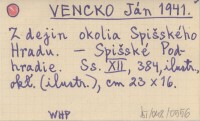 VENCKO Ján 1941.
Z dejín okolia Spišského
Hradu. – Spišské Pod-
hradie. Ss. XII, 384, ilustr,
obt. (ilustr.), cm 23 × 16.
WHP